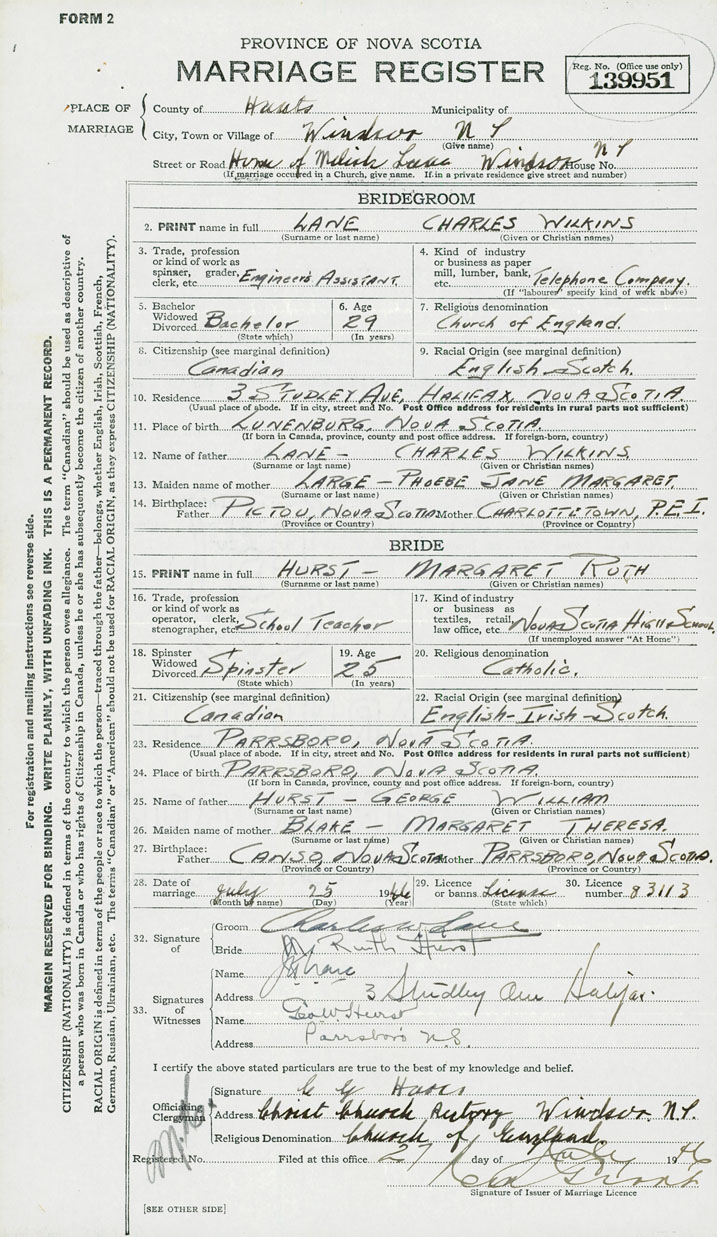 FORM 2
PROVINCE OF NOVA SCOTIA
MARRIAGE REGISTER
Reg. No. (Office use only)
139951
PLACE OF MARRIAGE
County of Hants Municipality of
City, Town or Village of Windsor N S
(Give name)
Street or Road Home of Lane Windsor N S House No.
(If marriage occurred in a Church, give name. If in a private residence give street and number)
BRIDEGROOM
2. PRINT name in full LANE CHARLES WILKINS
(Surname or last name) (Given or Christian names)
3. Trade, profession or kind of work as spinner, grader, clerk, etc. Engineers Assistant.
4. Kind of industry or business as paper mill, lumber, bank, etc. Telephone Company.
(If "labourer" specify kind of work above)
5. Bachelor Widowed Divorced Bachelor
(State which)
6. Age 29
(In years)
7. Religious denomination
Church of England.
8. Citizenship (see marginal definition)
Canadian
9. Racial Origin (see marginal definition)
English-Scotch.
10. Residence 3 STUDLEY AVE, HALIFAX, NOVA SCOTIA.
(Usual place of abode. If in city, street and No. Post Office address for residents in rural parts not sufficient)
11. Place of birth LUNENBURG, NOVA SCOTIA.
(If born in Canada, province, county and post office address. If foreign-born, country)
12. Name of father LANE - CHARLES WILKINS.
(Surname or last name) (Given or Christian names)
13. Maiden name of mother LARGE - PHOEBE JANE MARGARET.
(Surname or last name) (Given or Christian names)
14. Birthplace: Father PICTOU, NOVA SCOTIA Mother CHARLOTTETOWN, P.E.I.
(Province or Country) (Province or Country)
BRIDE
15. PRINT name in full HURST - MARGARET RUTH
(Surname or last name) (Given or Christian names)
16. Trade, profession or kind of work as operator, clerk, stenographer, etc. School Teacher
17. Kind of industry or business as textiles, retail, law office, etc. NOVA SCOTIA HIGH SCHOOL.
(If unemployed answer "At Home")
18. Spinster Widowed Divorced Spinster
(State which)
19. Age 25
(In years)
20. Religious denomination
Catholic.
21. Citizenship (see marginal definition)
Canadian
22. Racial Origin (see marginal definition)
English-Irish-Scotch.
23. Residence PARRSBORO, NOVA SCOTIA.
(Usual place of abode. If in city, street and No. Post Office address for residents in rural parts not sufficient)
24. Place of birth PARRSBORO, NOVA SCOTIA.
(If born in Canada, province, county and post office address. If foreign-born, country)
25. Name of father HURST - GEORGE WILLIAM
(Surname or last name) (Given or Christian names)
26. Maiden name of mother BLAKE - MARGARET THERESA.
(Surname or last name) (Given or Christian names)
27. Birthplace: Father CANSO, NOVA SCOTIA Mother PARRSBORO, NOVA SCOTIA.
(Province or Country) (Province or Country)
28. Date of marriage July 25 1946
(Month by name) (Day) (Year)
29. Licence or banns License
(State which)
30. Licence number 83113
32. Signature of
Groom Charles W Lane
Bride M. Ruth Hurst
33. Signatures of Witnesses
Name
Address 3 Studley Ave Halifax.
Name Geo W Hurst
Address Parrsboro N.S.
I certify the above stated particulars are true to the best of my knowledge and belief.
Officiating Clergyman
Signature
Address Christ Church Rectory Windsor. N.S.
Religious Denomination Church of England
Registered No. Filed at this office 27 day of July 1946
Signature of Issuer of Marriage Licence
[SEE OTHER SIDE]
For registration and mailing instructions see reverse side.
MARGIN RESERVED FOR BINDING. WRITE PLAINLY, WITH UNFADING INK. THIS IS A PERMANENT RECORD.
CITIZENSHIP (NATIONALITY) is defined in terms of the country to which the person owes allegiance. The term "Canadian" should be used as descriptive of
a person who was born in Canada or who has rights of Citizenship in Canada, unless he or she has subsequently become the citizen of another country.
RACIAL ORIGIN is defined in terms of the people or race to which the person—traced through the father—belongs, whether English, Irish, Scottish, French,
German, Russian, Ukrainian, etc. The terms "Canadian" or "American" should not be used for RACIAL ORIGIN, as they express CITIZENSHIP (NATIONALITY).